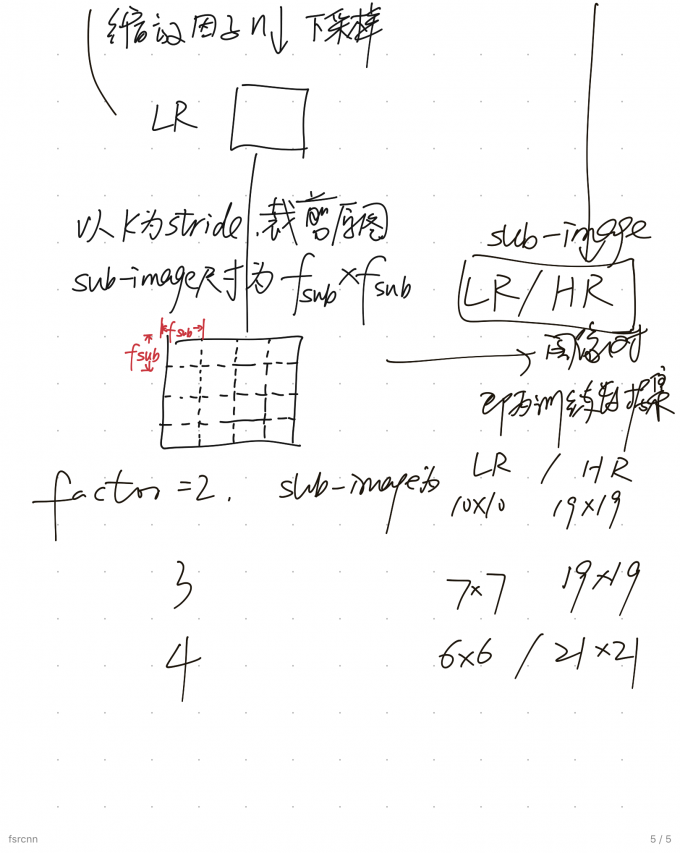 缩放因子n↓ 下采样
LR
以K为stride 裁剪原图
sub-image尺寸为 fsub×fsub
sub-image
LR / HR
fsub
fsub
即为训练数据集
LR / HR
factor = 2. sub-image为 10×10 19×19
3 7×7 19×19
4 6×6 / 21×21
fsrcnn
5 / 5